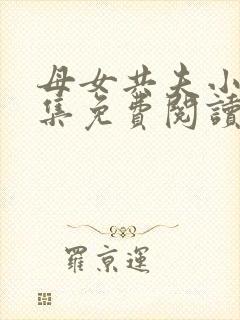 母女共夫小
集免費閱讀
羅京運